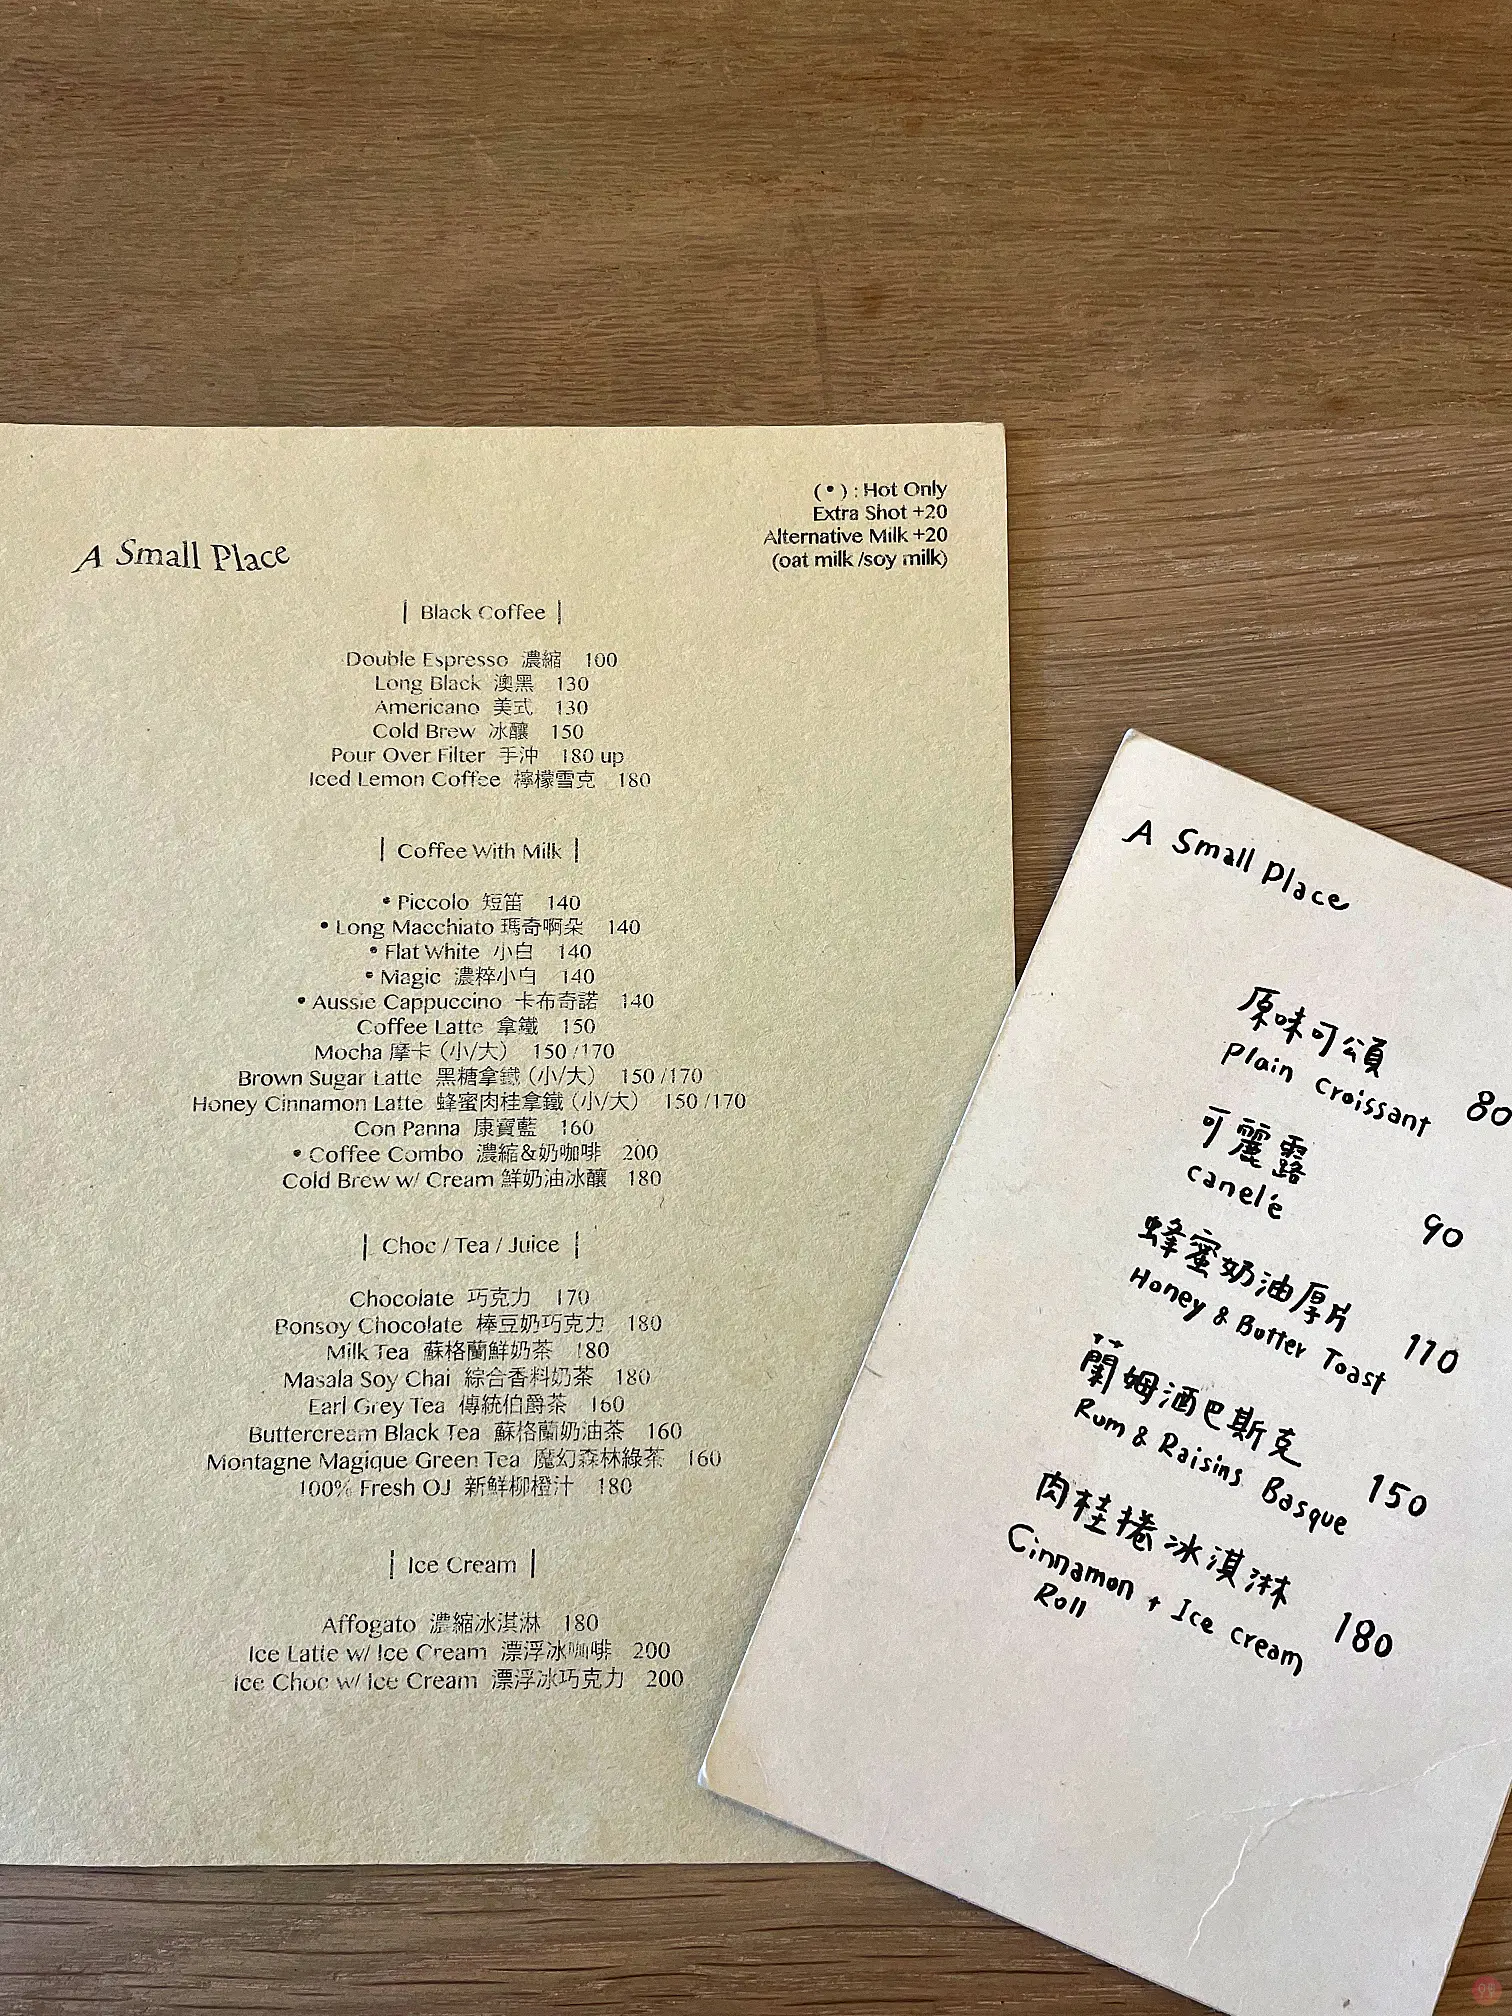 (•) : Hot Only
Extra Shot +20
Alternative Milk +20
(oat milk /soy milk)
A Small Place
| Black Coffee |
Double Espresso 濃縮 100
Long Black 澳黑 130
Americano 美式 130
Cold Brew 冰釀 150
Pour Over Filter 手沖 180 up
Iced Lemon Coffee 檸檬雪克 180
| Coffee With Milk |
• Piccolo 短笛 140
• Long Macchiato 瑪奇啊朵 140
• Flat White 小白 140
• Magic 濃粹小白 140
• Aussie Cappuccino 卡布奇諾 140
Coffee Latte 拿鐵 150
Mocha 摩卡（小/大） 150 /170
Brown Sugar Latte 黑糖拿鐵（小/大） 150 /170
Honey Cinnamon Latte 蜂蜜肉桂拿鐵（小/大） 150 /170
Con Panna 康寶藍 160
• Coffee Combo 濃縮&奶咖啡 200
Cold Brew w/ Cream 鮮奶油冰釀 180
| Choc / Tea / Juice |
Chocolate 巧克力 170
Bonsoy Chocolate 棒豆奶巧克力 180
Milk Tea 蘇格蘭鮮奶茶 180
Masala Soy Chai 綜合香料奶茶 180
Earl Grey Tea 傳統伯爵茶 160
Buttercream Black Tea 蘇格蘭奶油茶 160
Montagne Magique Green Tea 魔幻森林綠茶 160
100% Fresh OJ 新鮮柳橙汁 180
| Ice Cream |
Affogato 濃縮冰淇淋 180
Ice Latte w/ Ice Cream 漂浮冰咖啡 200
Ice Choc w/ Ice Cream 漂浮冰巧克力 200
A Small Place
原味可頌
Plain croissant 80
可麗露
canelé 90
蜂蜜奶油厚片
Honey & Butter Toast 110
蘭姆酒巴斯克
Rum & Raisins Basque 150
肉桂捲冰淇淋
Cinnamon + Ice cream 180
Roll